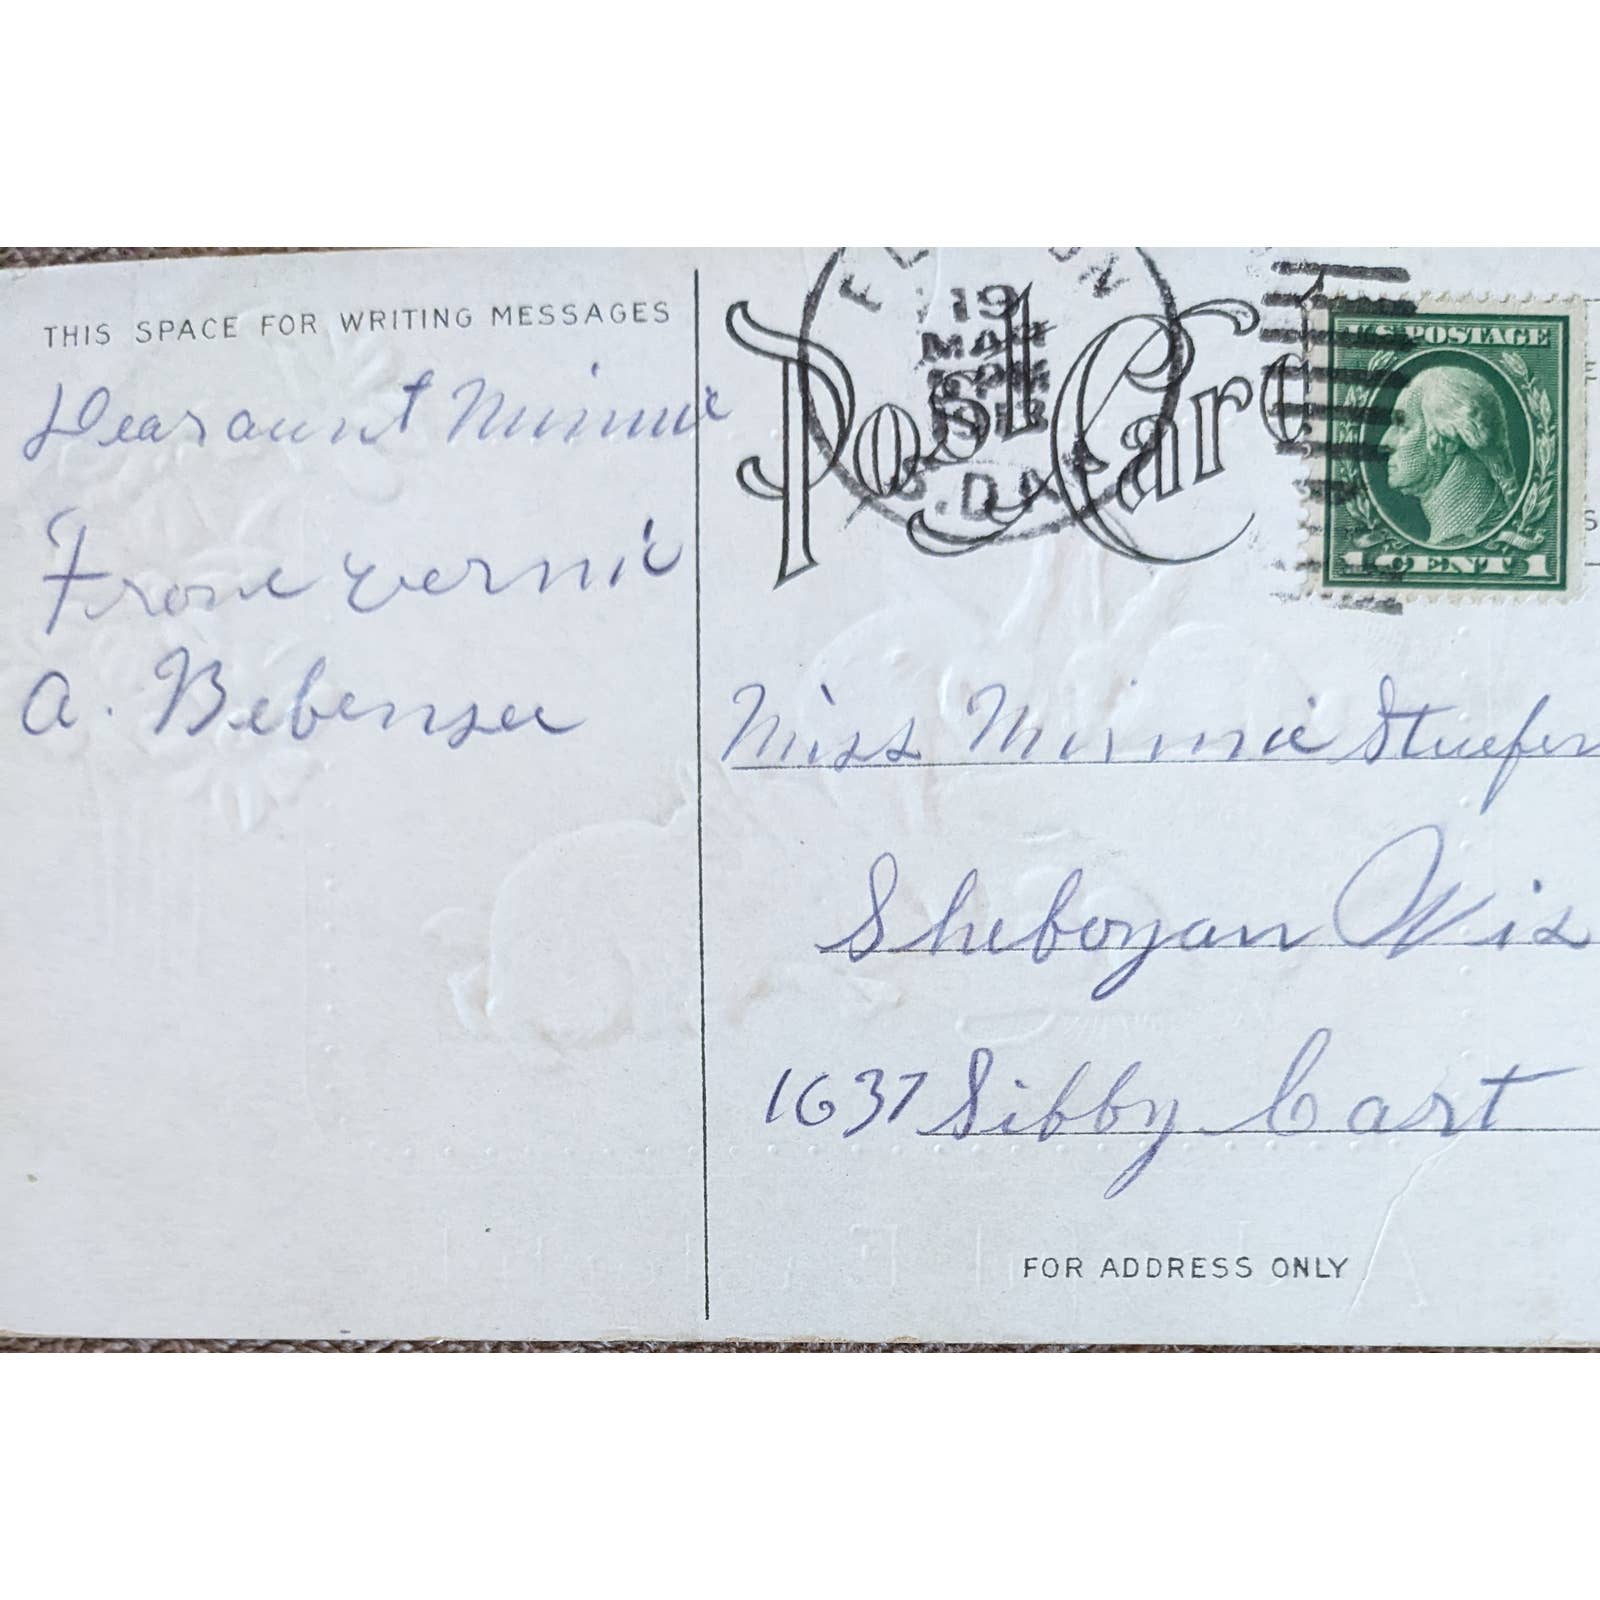 THIS SPACE FOR WRITING MESSAGES
Dear aunt Minnie
From vernie
a. Bebensee
Post Card
19
MAR
S. DAK
U.S. POSTAGE
1 CENT 1
Miss Minnie Stuefen
Sheboyan Wis
1637 Sibby Cart
FOR ADDRESS ONLY